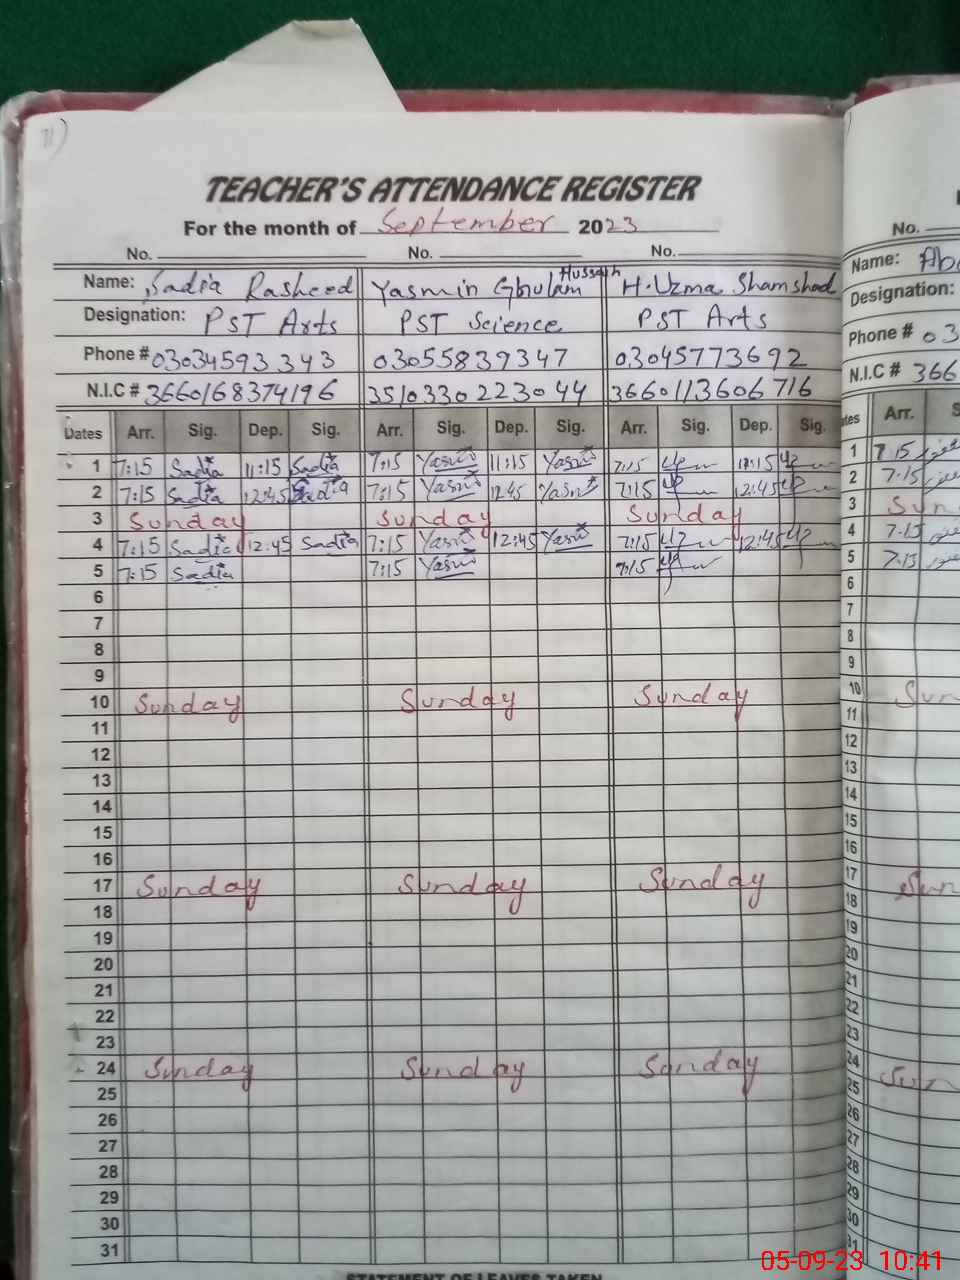 71)
TEACHER'S ATTENDANCE REGISTER
For the month of September 2023
No. No. No. No.
Name: Sadia Rasheed Yasmin Ghulam Hussain H.Uzma Shamshad Name:
Designation: PST Arts PST Science PST Arts Designation:
Phone # 03034593343 03055839347 03045773692 Phone # 03
N.I.C # 3660168374196 3510330223044 3660113606716 N.I.C # 366
Dates Arr. Sig. Dep. Sig. Arr. Sig. Dep. Sig. Arr. Sig. Dep. Sig. Arr.
1 7:15 Sadia 11:15 Sadia 7:15 Yasmin 11:15 Yasmin 7:15 11:15 1 7:15
2 7:15 Sadia 12:45 Sadia 7:15 Yasmin 12:45 Yasmin 7:15 12:45 2 7:15
3 Sunday Sunday Sunday 3 Sun
4 7:15 Sadia 12:45 Sadia 7:15 Yasmin 12:45 Yasmin 7:15 12:45 4 7:15
5 7:15 Sadia 7:15 Yasmin 7:15 5 7:15
6 6
7 7
8 8
9 9
10 Sunday Sunday Sunday 10 Sun
11 11
12 12
13 13
14 14
15 15
16 16
17 Sunday Sunday Sunday 17 Sun
18 18
19 19
20 20
21 21
22 22
23 23
24 Sunday Sunday Sunday 24 Sun
25 25
26 26
27 27
28 28
29 29
30 30
31 31
STATEMENT OF LEAVES TAKEN
05-09-23 10:41